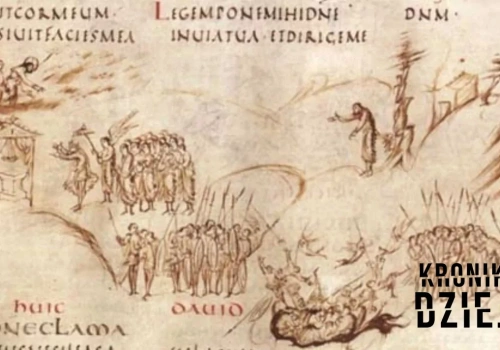 ITCORMEUM· LEGEMPONEMIHIDNE DNM·
SIUITFACIESMEA INUIATUA·ETDIRIGEME
huic DAUID
ONECLAMA
KRONIK
DZIE